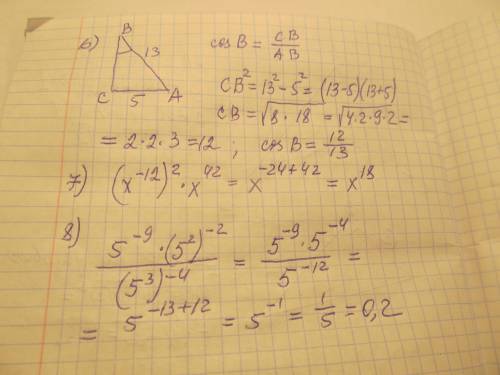 6) B 13 C 5 A cos B = CB/AB
CB² = 13² - 5² = (13-5)(13+5)
CB = √(8 · 18) = √(4·2·9·2) =
= 2·2·3 = 12 ; cos B = 12/13
7) (x⁻¹²)² · x⁴² = x⁻²⁴⁺⁴² = x¹⁸
8) (5⁻⁹ · (5²)⁻²)/((5³)⁻⁴) = (5⁻⁹ · 5⁻⁴)/(5⁻¹²) =
= 5⁻¹³⁺¹² = 5⁻¹ = 1/5 = 0,2